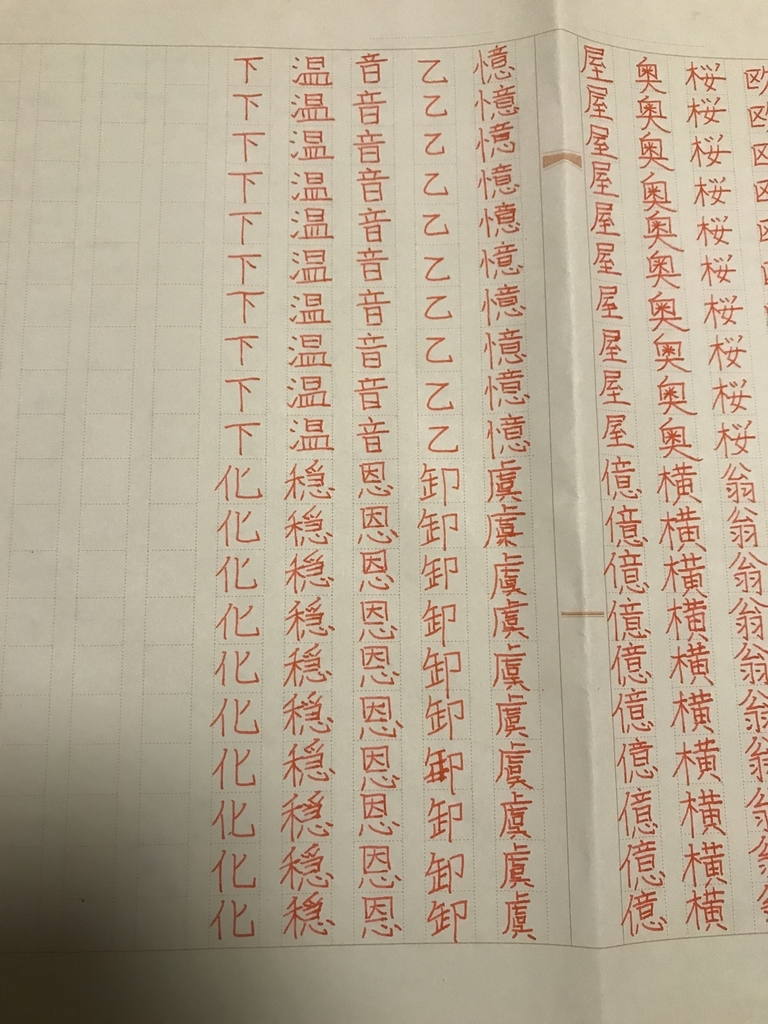 欧欧
桜桜桜桜桜桜桜桜桜桜翁翁翁翁翁翁翁翁翁翁
奥奥奥奥奥奥奥奥奥奥横横横横横横横横横横
屋屋屋屋屋屋屋屋屋屋億億億億億億億億億億
憶憶憶憶憶憶憶憶憶憶虞虞虞虞虞虞虞虞虞虞
乙乙乙乙乙乙乙乙乙乙卸卸卸卸卸卸卸卸卸卸
音音音音音音音音音音恩恩恩恩恩恩恩恩恩恩
温温温温温温温温温温穏穏穏穏穏穏穏穏穏穏
下下下下下下下下下下化化化化化化化化化化